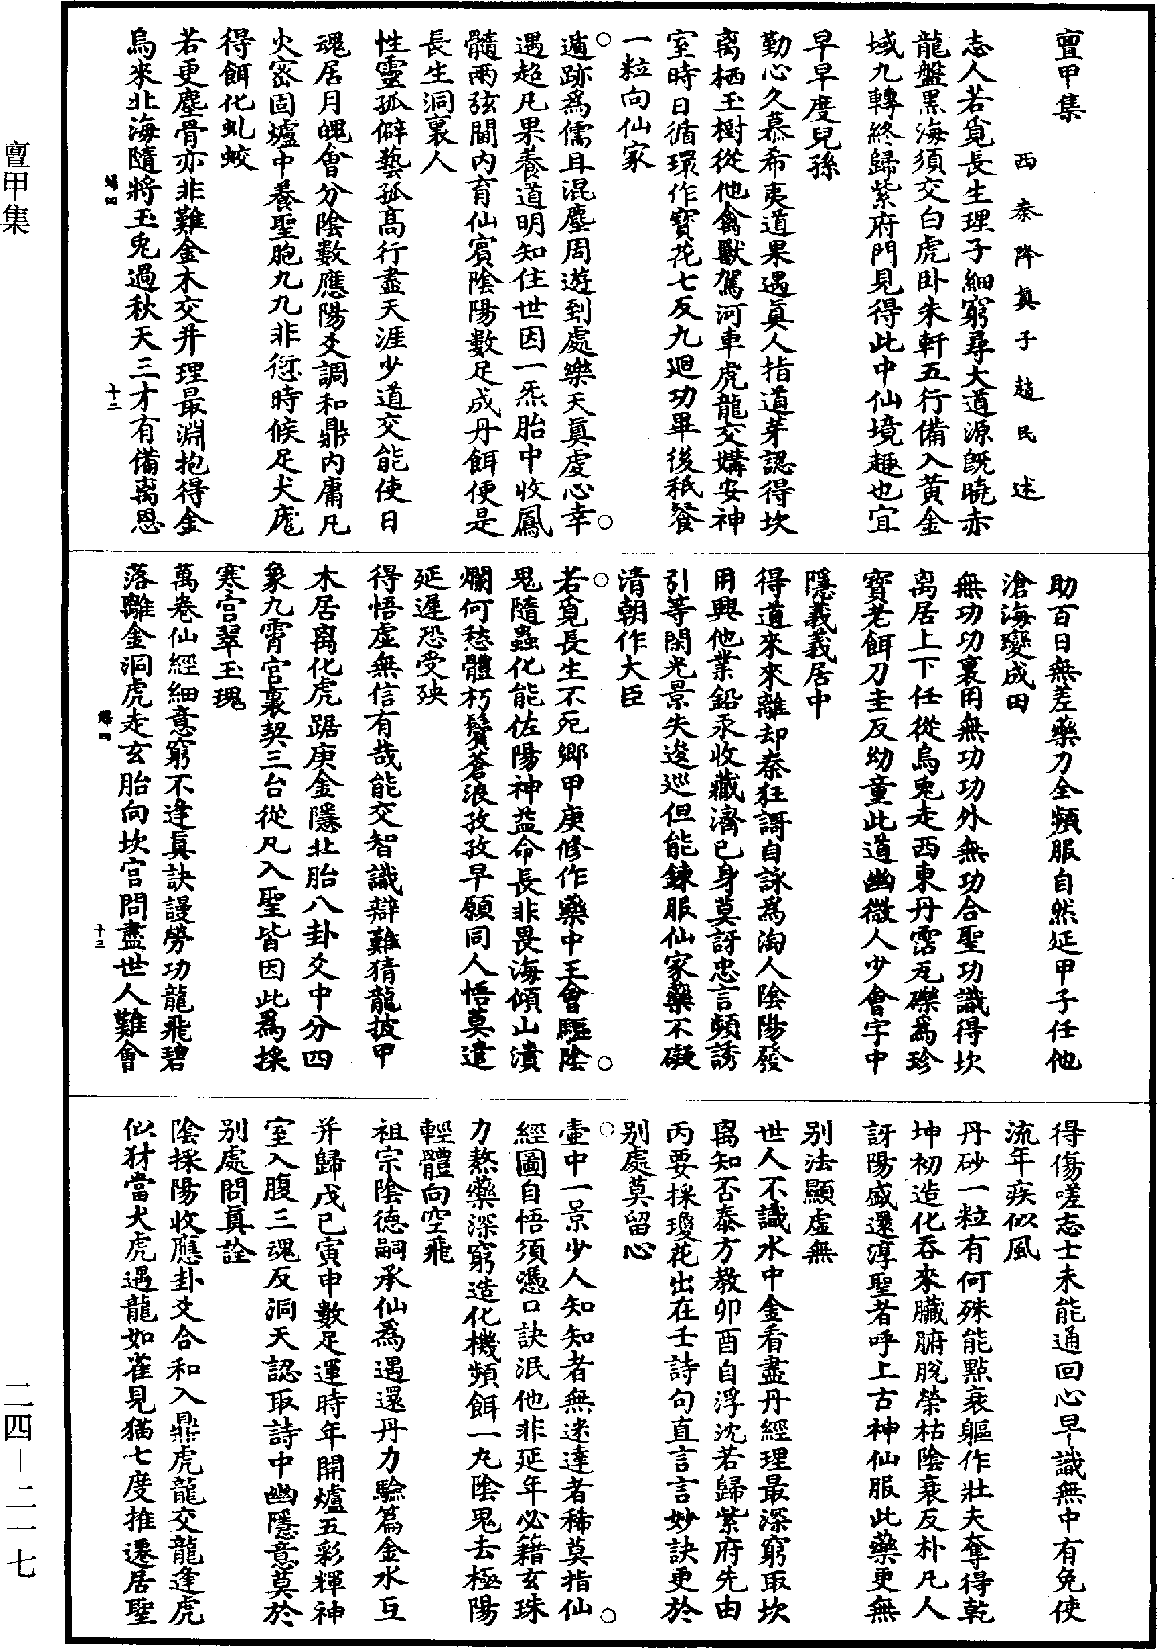 亶甲集
西秦降真子趙民述
志人若覓長生理子細窮尋大道源旣曉赤
龍盤黑海須交白虎卧朱軒五行備入黃金
域九轉終歸紫府門見得此中仙境趣也宜
早早度兒孫
勤心久慕希夷道果遇真人指道芽認得坎
离栖玉樹從他禽獸駕河車虎龍交媾安神
室時日循環作寶花七反九迴功畢後秖飡
一粒向仙家
遁跡為儒且混塵周遊到處樂天真虔心幸
遇超凡果養道明知住世因一炁胎中收鳳
髓兩弦間內育仙賓陰陽數足成丹餌便是
長生洞裏人
性靈孤僻藝孤高行盡天涯少道交能使日
魂居月魄會分陰數應陽爻調和鼎內庸凡
火密固爐中養聖胞九九非愆時候足犬厖
得餌化虬蛟
若更塵骨亦非難金木交并理最淵抱得金
烏來北海隨將玉兎過秋天三才有備离恩
助百日無差藥力全頻服自然延甲子任他
滄海變成田
無功功裏用無功功外無功合聖功識得坎
离居上下任從烏兎走西東丹霑瓦礫為珍
寶老餌刀圭反幼童此道幽微人少會字中
隱義義居中
得道來來離却秦狂謌自詠為淘人陰陽發
用興他業鉛汞收藏濟己身莫訝忠言頻誘
引等閑光景失逡巡但能鍊服仙家藥不礙
清朝作大臣
若覓長生不死鄉甲庚修作藥中王會驅陰
鬼隨蟲化能佐陽神益命長非畏海傾山潰
爛何愁體朽鬢蒼浪孜孜早願同人悟莫遣
延遲恐受殃
得悟虛無信有哉能交智識辯難猜龍披甲
木居离化虎踞庚金隱北胎八卦爻中分四
象九霄宫裏契三台從凡入聖皆因此為採
寒宫翠玉瑰
萬卷仙經細意窮不逢真訣謾勞功龍飛碧
落離金洞虎走玄胎向坎宫問盡世人難會
得傷嗟志士未能通回心早識無中有免使
流年疾似風
丹砂一粒有何殊能點衰軀作壯夫奪得乾
坤初造化吞來臟腑脫榮枯陰衰反朴凡人
訝陽盛還淳聖者呼上古神仙服此藥更無
别法顯虛無
世人不識水中金看盡丹經理最深窮取坎
离知否泰方教卯酉自浮沈若歸紫府先由
丙要採瓊花出在壬詩句直言言妙訣更於
别處莫留心
壷中一景少人知知者無迷達者稀莫指仙
經圖自悟須憑口訣泯他非延年必籍玄珠
力熬藥深窮造化機頻餌一丸陰鬼去極陽
輕體向空飛
祖宗陰德嗣承仙為遇還丹力驗篇金水互
并歸戊己寅申數足運時年開爐五彩輝神
室入腹三魂反洞天認取詩中幽隱意莫於
别處問真詮
陰採陽收應卦爻合和入鼎虎龍交龍逢虎
似犲當犬虎遇龍如雀見猫七度推遷居聖
亶甲集
二四—二一七
十二
十三